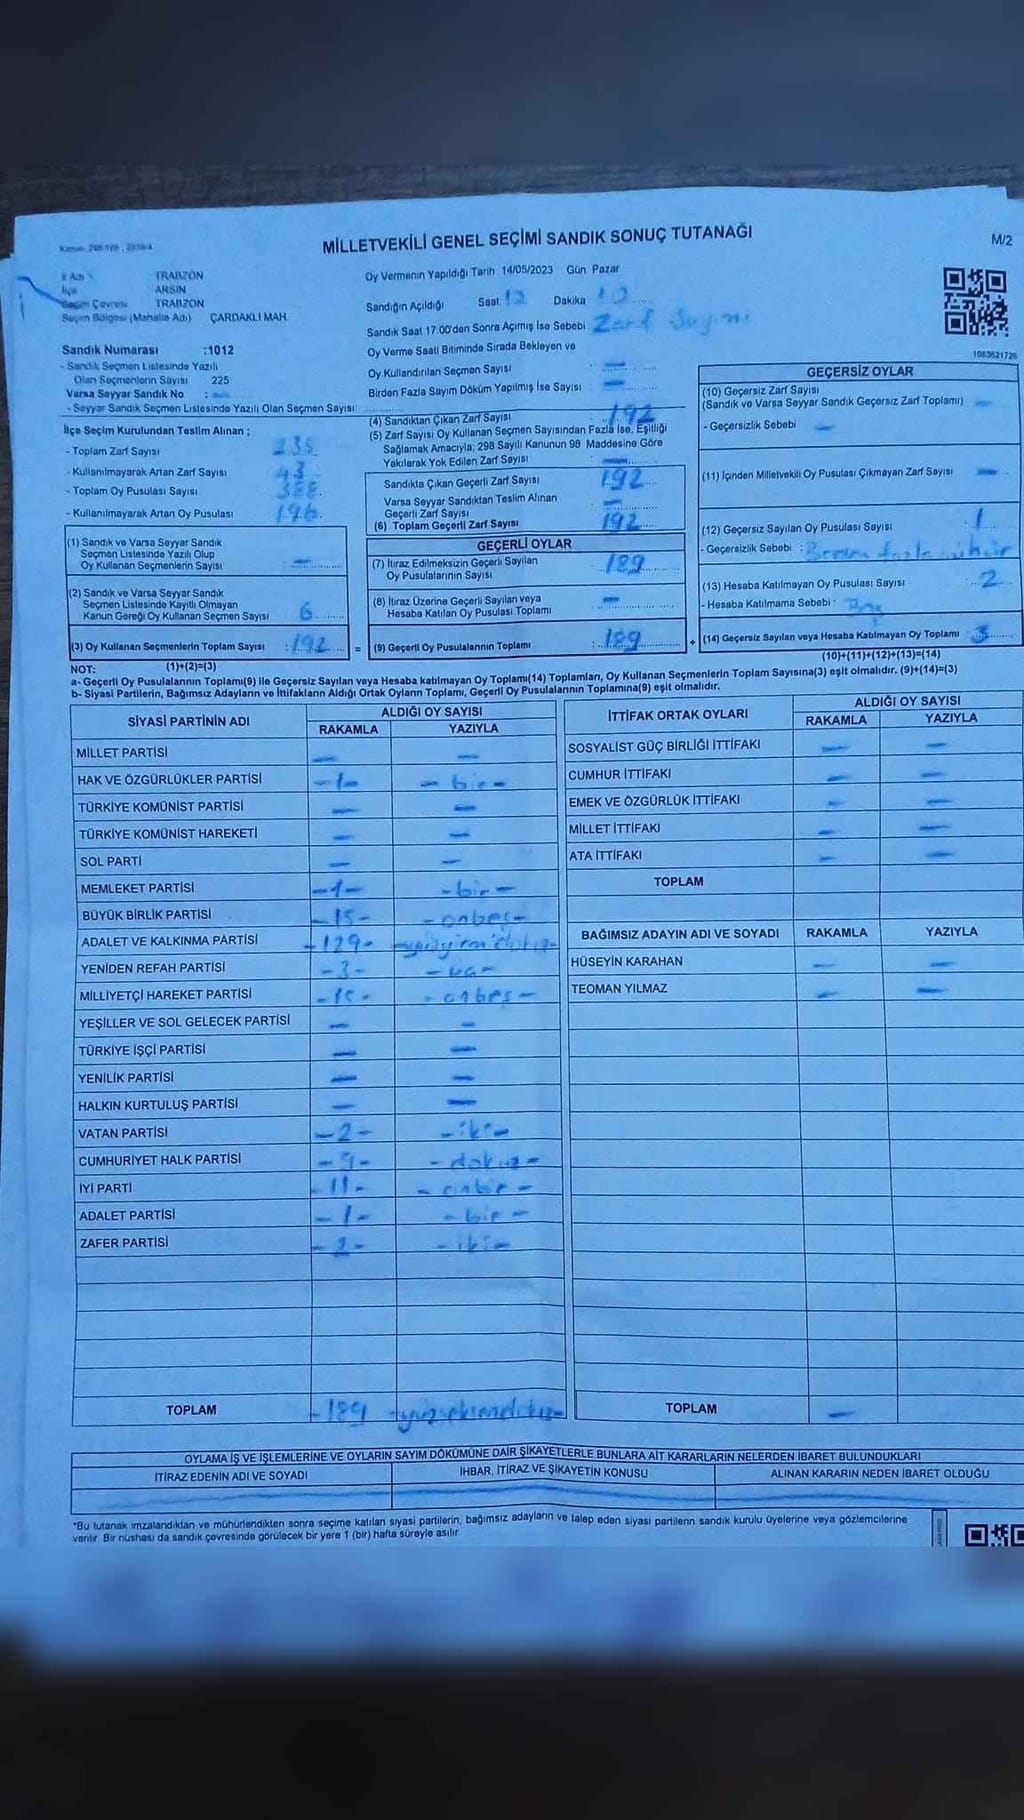 Kanun: 298/105, 2839/4
MİLLETVEKİLİ GENEL SEÇİMİ SANDIK SONUÇ TUTANAĞI
M/2
İl Adı : TRABZON
İlçe ARSIN
Seçim Çevresi TRABZON
Seçim Bölgesi (Mahalle Adı) ÇARDAKLI MAH.
Oy Vermenin Yapıldığı Tarih 14/05/2023 Gün Pazar
Sandığın Açıldığı Saat: Dakika
Sandık Saat 17:00'den Sonra Açımış İse Sebebi : Zarf Sayımı
1063621726
Sandık Numarası :1012
- Sandık Seçmen Listesinde Yazılı
Olan Seçmenlerin Sayısı 225
Varsa Seyyar Sandık No : -
- Seyyar Sandık Seçmen Listesinde Yazılı Olan Seçmen Sayısı:
Oy Verme Saati Bitiminde Sırada Bekleyen ve
Oy Kullandırılan Seçmen Sayısı : -
Birden Fazla Sayım Döküm Yapılmış İse Sayısı : -
(4) Sandıktan Çıkan Zarf Sayısı : 192
(5) Zarf Sayısı Oy Kullanan Seçmen Sayısından Fazla İse, Eşitliği
Sağlamak Amacıyla; 298 Sayılı Kanunun 98 Maddesine Göre
Yakılarak Yok Edilen Zarf Sayısı : -
İlçe Seçim Kurulundan Teslim Alınan ;
- Toplam Zarf Sayısı : 235
- Kullanılmayarak Artan Zarf Sayısı : 43
- Toplam Oy Pusulası Sayısı :
- Kullanılmayarak Artan Oy Pusulası : 196
Sandıkta Çıkan Geçerli Zarf Sayısı : 192
Varsa Seyyar Sandıktan Teslim Alınan
Geçerli Zarf Sayısı : -
(6) Toplam Geçerli Zarf Sayısı : 192
(1) Sandık ve Varsa Seyyar Sandık
Seçmen Listesinde Yazılı Olup
Oy Kullanan Seçmenlerin Sayısı : -
(2) Sandık ve Varsa Seyyar Sandık
Seçmen Listesinde Kayıtlı Olmayan
Kanun Gereği Oy Kullanan Seçmen Sayısı : 6
(3) Oy Kullanan Seçmenlerin Toplam Sayısı : 192 =
(1)+(2)=(3)
GEÇERLİ OYLAR
(7) İtiraz Edilmeksizin Geçerli Sayılan
Oy Pusulalarının Sayısı : 189
(8) İtiraz Üzerine Geçerli Sayılan veya
Hesaba Katılan Oy Pusulası Toplamı : -
(9) Geçerli Oy Pusulalarının Toplamı : 189 +
GEÇERSİZ OYLAR
(10) Geçersiz Zarf Sayısı
(Sandık ve Varsa Seyyar Sandık Geçersiz Zarf Toplamı) : -
- Geçersizlik Sebebi : -
(11) İçinden Milletvekili Oy Pusulası Çıkmayan Zarf Sayısı : -
(12) Geçersiz Sayılan Oy Pusulası Sayısı : 1
- Geçersizlik Sebebi : Birden fazla mühür
(13) Hesaba Katılmayan Oy Pusulası Sayısı : 2
- Hesaba Katılmama Sebebi : Boş
(14) Geçersiz Sayılan veya Hesaba Katılmayan Oy Toplamı : 3
(10)+(11)+(12)+(13)=(14)
NOT:
a- Geçerli Oy Pusulalarının Toplamı(9) ile Geçersiz Sayılan veya Hesaba katılmayan Oy Toplamı(14) Toplamları, Oy Kullanan Seçmenlerin Toplam Sayısına(3) eşit olmalıdır. (9)+(14)=(3)
b- Siyasi Partilerin, Bağımsız Adayların ve İttifakların Aldığı Ortak Oyların Toplamı, Geçerli Oy Pusulalarının Toplamına(9) eşit olmalıdır.
SİYASİ PARTİNİN ADI ALDIĞI OY SAYISI
RAKAMLA YAZIYLA
MİLLET PARTİSİ - -
HAK VE ÖZGÜRLÜKLER PARTİSİ -1- - bir -
TÜRKİYE KOMÜNİST PARTİSİ - -
TÜRKİYE KOMÜNİST HAREKETİ - -
SOL PARTİ - -
MEMLEKET PARTİSİ -1- -bir-
BÜYÜK BİRLİK PARTİSİ -15- -onbeş-
ADALET VE KALKINMA PARTİSİ -129- -yüzyirmidokuz-
YENİDEN REFAH PARTİSİ -3- -üç-
MİLLİYETÇİ HAREKET PARTİSİ -15- -onbeş-
YEŞİLLER VE SOL GELECEK PARTİSİ - -
TÜRKİYE İŞÇİ PARTİSİ - -
YENİLİK PARTİSİ - -
HALKIN KURTULUŞ PARTİSİ - -
VATAN PARTİSİ -2- -iki-
CUMHURİYET HALK PARTİSİ -9- -dokuz-
İYİ PARTİ -11- -onbir-
ADALET PARTİSİ -1- -bir-
ZAFER PARTİSİ -2- -iki-
TOPLAM -189 -yüzseksendokuz-
İTTİFAK ORTAK OYLARI ALDIĞI OY SAYISI
RAKAMLA YAZIYLA
SOSYALİST GÜÇ BİRLİĞİ İTTİFAKI - -
CUMHUR İTTİFAKI - -
EMEK VE ÖZGÜRLÜK İTTİFAKI - -
MİLLET İTTİFAKI - -
ATA İTTİFAKI - -
TOPLAM
BAĞIMSIZ ADAYIN ADI VE SOYADI RAKAMLA YAZIYLA
HÜSEYİN KARAHAN - -
TEOMAN YILMAZ - -
TOPLAM -
OYLAMA İŞ VE İŞLEMLERİNE VE OYLARIN SAYIM DÖKÜMÜNE DAİR ŞİKAYETLERLE BUNLARA AİT KARARLARIN NELERDEN İBARET BULUNDUKLARI
İTİRAZ EDENİN ADI VE SOYADI İHBAR, İTİRAZ VE ŞİKAYETİN KONUSU ALINAN KARARIN NEDEN İBARET OLDUĞU
*Bu tutanak imzalandıktan ve mühürlendikten sonra seçime katılan siyasi partilerin, bağımsız adayların ve talep eden siyasi partilerin sandık kurulu üyelerine veya gözlemcilerine
verilir. Bir nüshası da sandık çevresinde görülecek bir yere 1 (bir) hafta süreyle asılır.